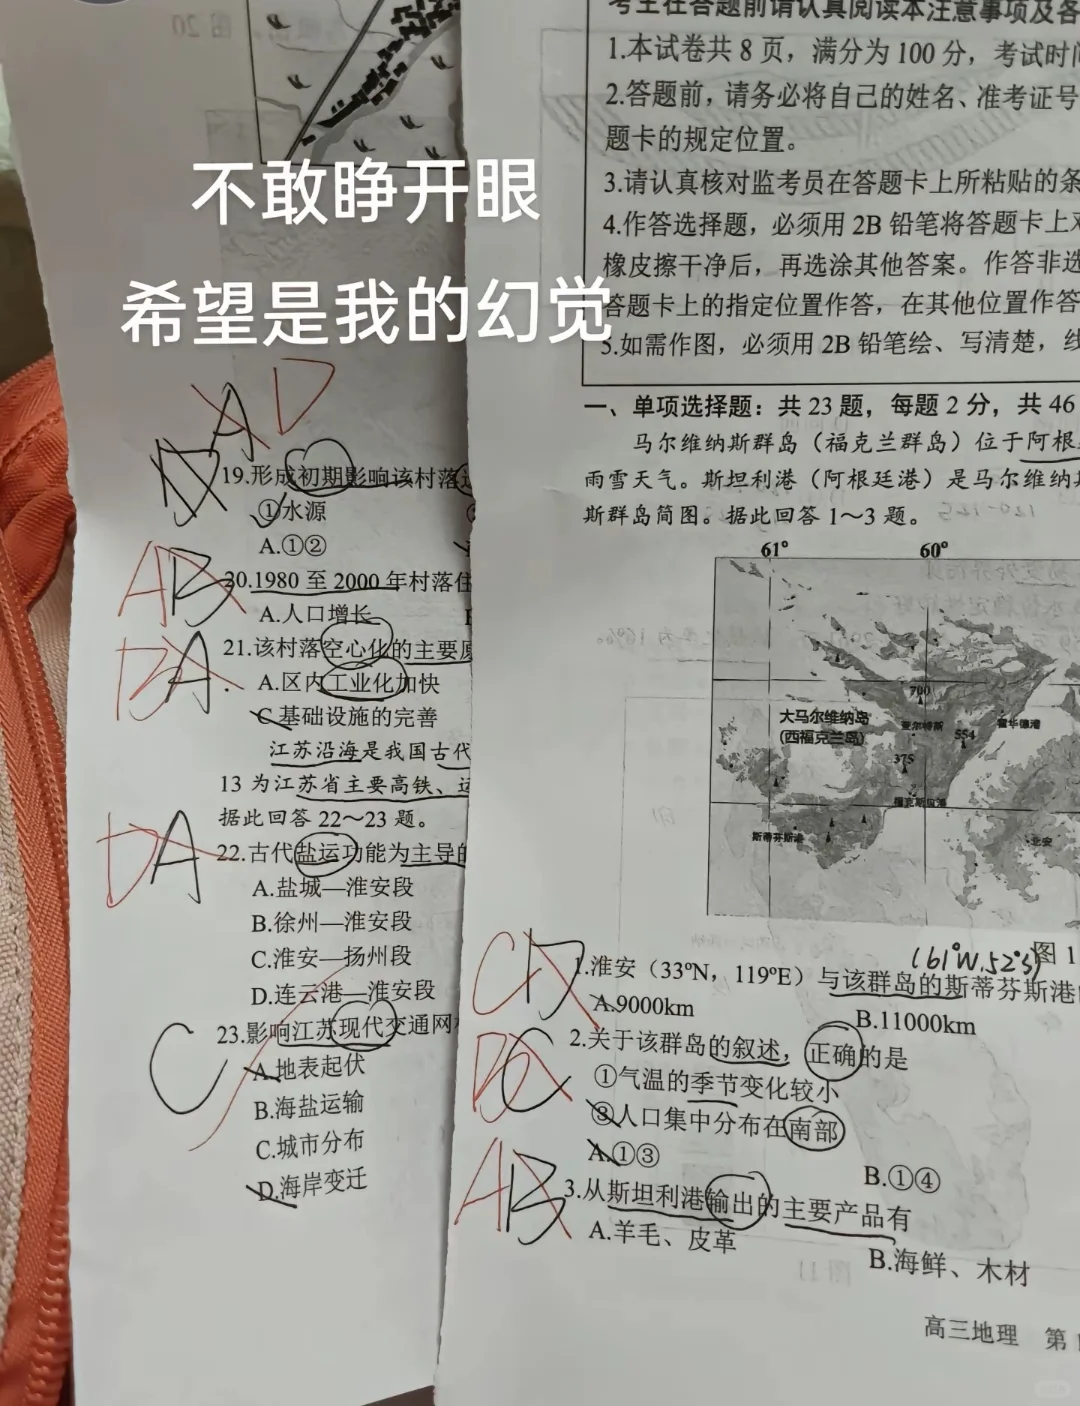 不敢睁开眼
希望是我的幻觉
A D
19.形成初期影响该村落
①水源
A.①②
A B
20.1980 至 2000 年村落住
A.人口增长
B A
21.该村落空心化的主要原
A.区内工业化加快
C.基础设施的完善
江苏沿海是我国古代
13 为江苏省主要高铁、运
据此回答 22～23 题。
D A
22.古代盐运功能为主导的
A.盐城—淮安段
B.徐州—淮安段
C.淮安—扬州段
D.连云港—淮安段
C
23.影响江苏现代交通网
A.地表起伏
B.海盐运输
C.城市分布
D.海岸变迁
考生在答题前请认真阅读本注意事项及各
1.本试卷共 8 页，满分为 100 分，考试时间
2.答题前，请务必将自己的姓名、准考证号
题卡的规定位置。
3.请认真核对监考员在答题卡上所粘贴的条
4.作答选择题，必须用 2B 铅笔将答题卡上对
橡皮擦干净后，再选涂其他答案。作答非选
答题卡上的指定位置作答，在其他位置作答
5.如需作图，必须用 2B 铅笔绘、写清楚，线
一、单项选择题：共 23 题，每题 2 分，共 46
马尔维纳斯群岛（福克兰群岛）位于阿根
雨雪天气。斯坦利港（阿根廷港）是马尔维纳
斯群岛简图。据此回答 1～3 题。
61° 60°
700
大马尔维纳岛
(西福克兰岛)
霍华德港
554
375
福克斯湾港
斯蒂芬斯港
北安
(61°W,52°S)
图 1
C D
1.淮安（33°N，119°E）与该群岛的斯蒂芬斯港
A.9000km B.11000km
B C
2.关于该群岛的叙述，正确的是
①气温的季节变化较小
③人口集中分布在南部
A.①③ B.①④
A B
3.从斯坦利港输出的主要产品有
A.羊毛、皮革 B.海鲜、木材
高三地理 第 1